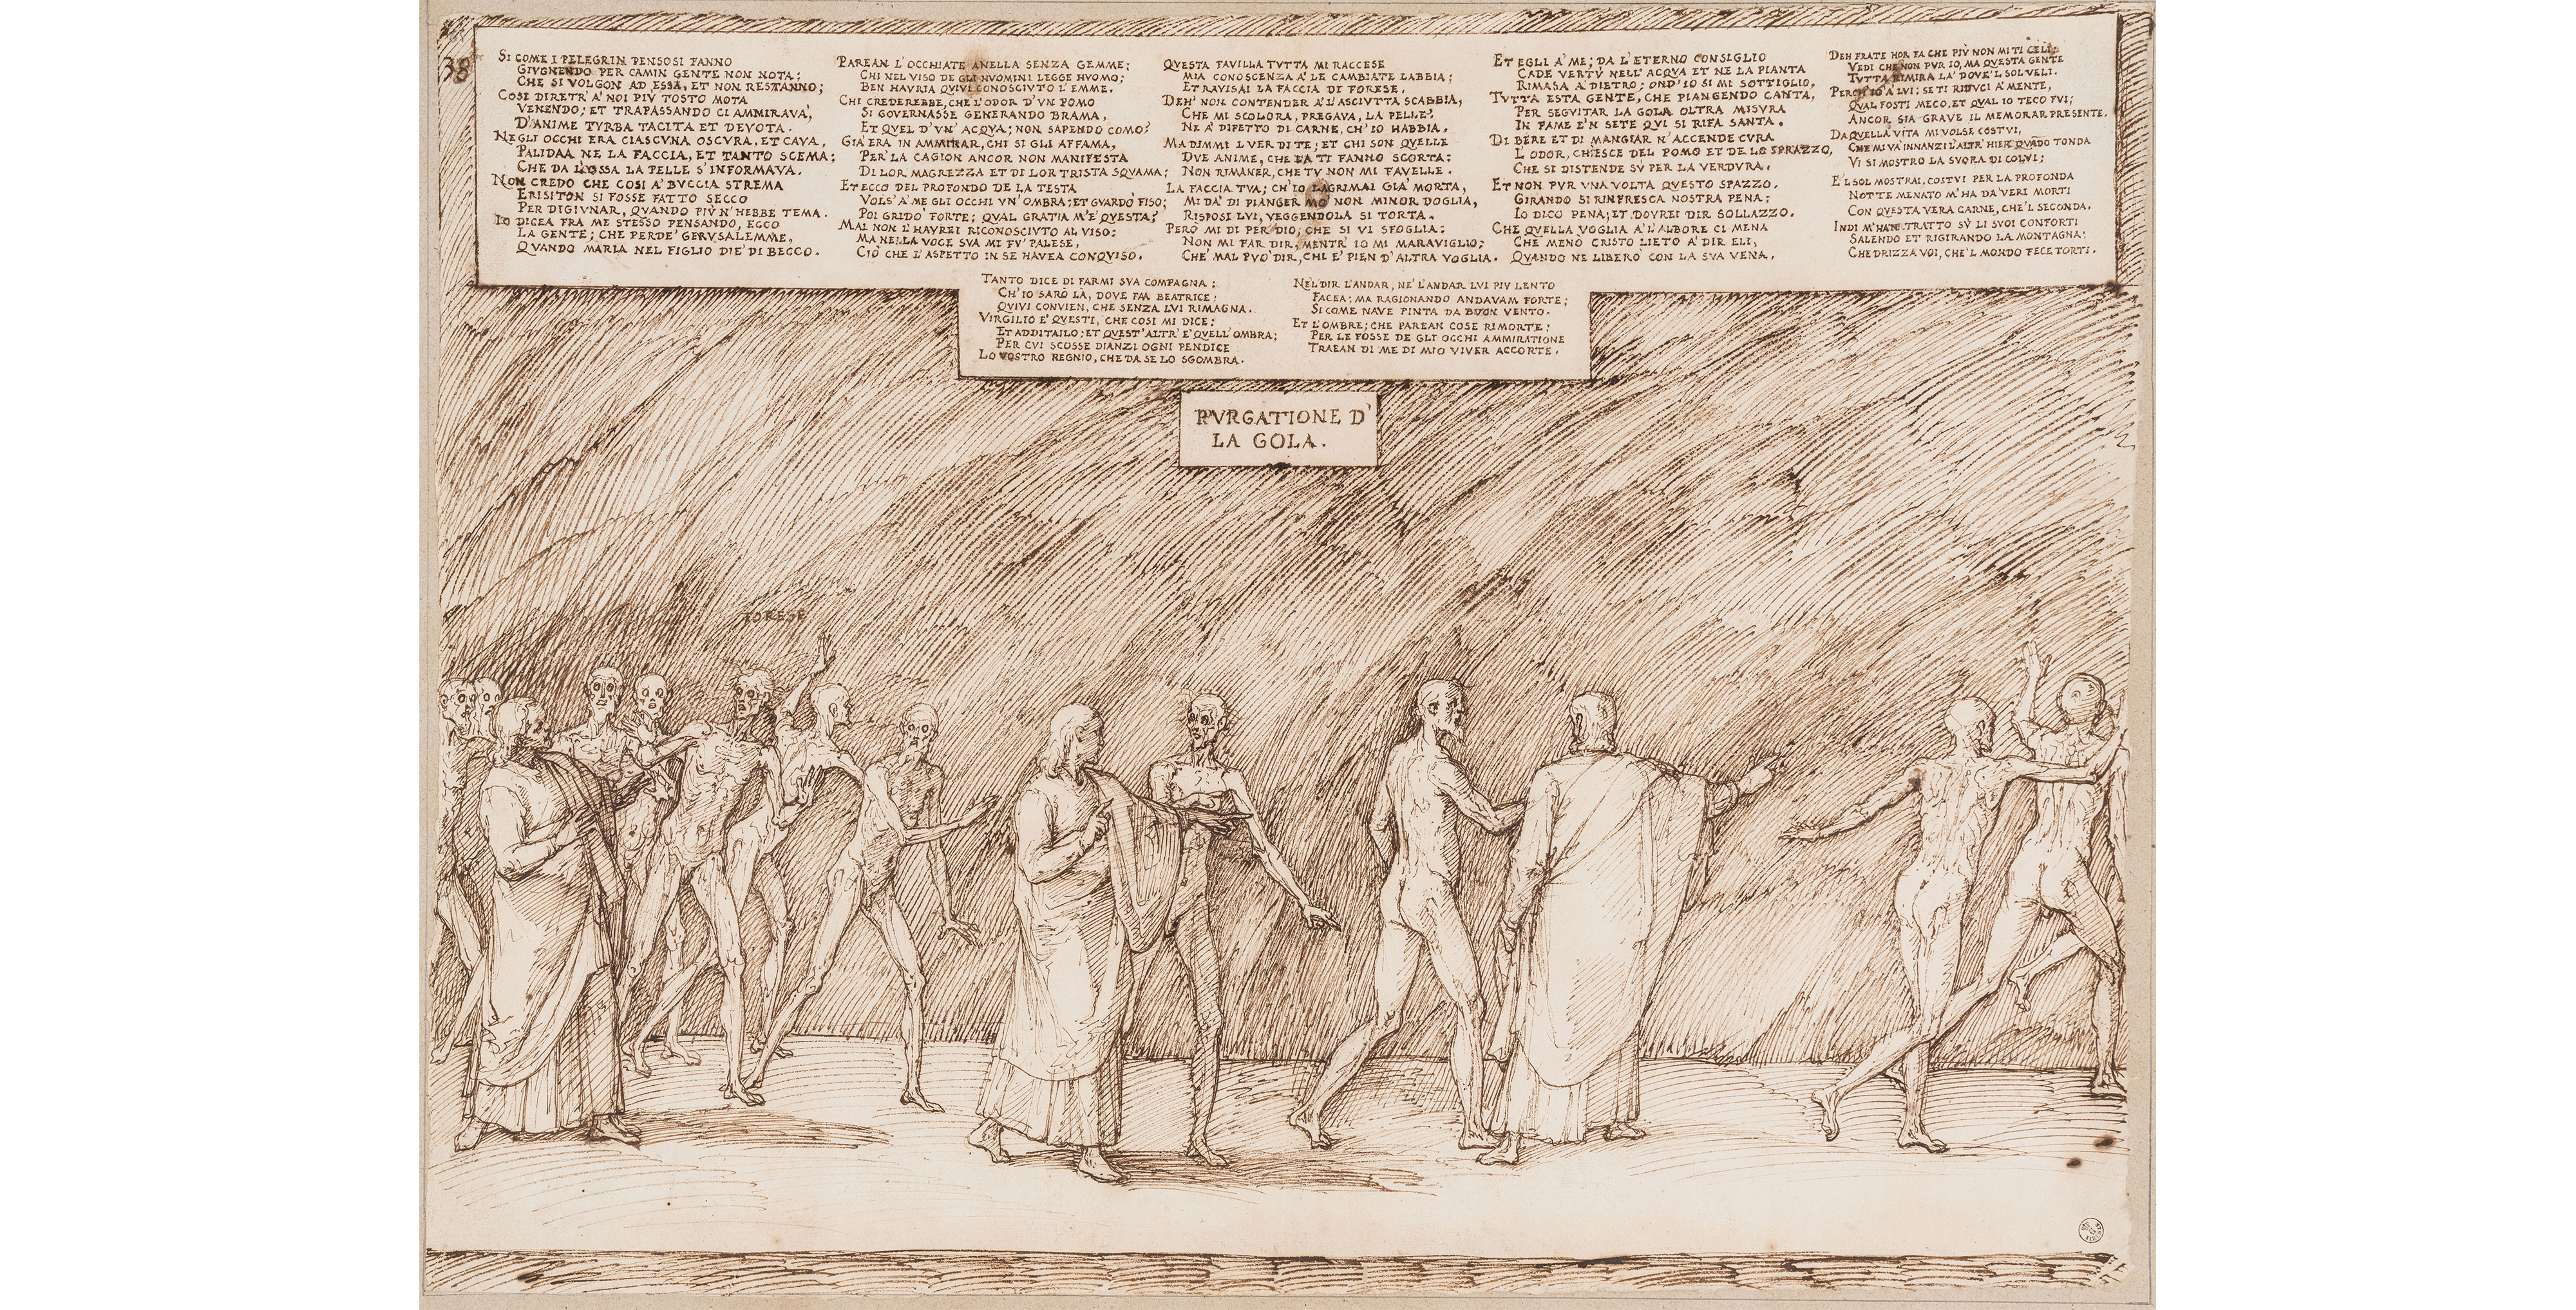 38
SI COME I PELEGRIN PENSOSI FANNO
GIVGNENDO PER CAMIN GENTE NON NOTA;
CHE SI VOLGON AD ESSA, ET NON RESTANNO;
COSI DIRETR' À NOI PIV TOSTO MOTA
VENENDO; ET TRAPASSANDO CI AMMIRAVA,
D'ANIME TVRBA TACITA ET DEVOTA.
NEGLI OCCHI ERA CIASCVNA OSCVRA, ET CAVA,
PALIDA A NE LA FACCIA, ET TANTO SCEMA;
CHE DA L'OSSA LA PELLE S'INFORMAVA.
NON CREDO CHE COSI À BVCCIA STREMA
ERISITON SI FOSSE FATTO SECCO
PER DIGIVNAR, QVANDO PIV N'HEBBE TEMA.
IO DICEA FRA ME STESSO PENSANDO, ECCO
LA GENTE; CHE PERDE' GERVSALEMME,
QVANDO MARIA NEL FIGLIO DIE' DI BECCO.
PAREAN L'OCCHIATE ANELLA SENZA GEMME;
CHI NEL VISO DE GLI HVOMINI LEGGE HVOMO;
BEN HAVRIA QVIVI CONOSCIVTO L'EMME.
CHI CREDEREBBE, CHE L'ODOR D'VN POMO
SI GOVERNASSE GENERANDO BRAMA,
ET QVEL D'VN' ACQVA; NON SAPENDO COMO?
GIA' ERA IN AMMIRAR, CHI SI GLI AFFAMA,
PER LA CAGION ANCOR NON MANIFESTA
DI LOR MAGREZZA ET DI LOR TRISTA SQVAMA;
ET ECCO DEL PROFONDO DE LA TESTA
VOLS' A' ME GLI OCCHI VN' OMBRA; ET GVARDÒ FISO;
POI GRIDO' FORTE; QVAL GRATIA M'E' QVESTA?
MAI NON L'HAVREI RICONOSCIVTO AL VISO:
MA NELLA VOCE SVA MI FV' PALESE,
CIO' CHE L'ASPETTO IN SE HAVEA CONQVISO.
QVESTA FAVILLA TVTTA MI RACCESE
MIA CONOSCENZA A' LE CAMBIATE LABBIA;
ET RAVISAI LA FACCIA DI FORESE.
DEH' NON CONTENDER A' L'ASCIVTTA SCABBIA,
CHE MI SCOLORA, PREGAVA, LA PELLE;
NE A' DIFETTO DI CARNE, CH'IO HABBIA.
MA DIMMI L VER DI TE; ET CHI SON QVELLE
DVE ANIME, CHE LA TI FANNO SCORTA:
NON RIMANER, CHE TV NON MI FAVELLE.
LA FACCIA TVA; CH'IO LAGRIMAI GIA' MORTA,
MI DA' DI PIANGER MO' NON MINOR DOGLIA,
RISPOSI LVI, VEGGENDOLA SI TORTA.
PERÒ MI DI PER DIO, CHE SI VI SFOGLIA;
NON MI FAR DIR, MENTR' IO MI MARAVIGLIO;
CHE' MAL PVO' DIR, CHI E' PIEN D'ALTRA VOGLIA.
ET EGLI A' ME; DA L'ETERNO CONSIGLIO
CADE VERTÙ NELL' ACQVA ET NE LA PIANTA
RIMASA A' DIETRO; OND'IO SI MI SOTTIGLIO.
TVTTA ESTA GENTE, CHE PIANGENDO CANTA,
PER SEGVITAR LA GOLA OLTRA MISVRA
IN FAME E'N SETE QVI SI RIFA SANTA.
DI BERE ET DI MANGIAR N'ACCENDE CVRA
L'ODOR, CH'ESCE DEL POMO ET DE LO SPRAZZO,
CHE SI DISTENDE SV PER LA VERDVRA.
ET NON PVR VNA VOLTA QVESTO SPAZZO.
GIRANDO SI RINFRESCA NOSTRA PENA;
IO DICO PENA; ET DOVREI DIR SOLLAZZO.
CHE QVELLA VOGLIA A' L'ALBORE CI MENA
CHE MENÒ CRISTO LIETO A' DIR ELI,
QVANDO NE LIBERÒ CON LA SVA VENA.
DEH FRATE HOR FA CHE PIÙ NON MI TI CELI;
VEDI CHE NON PVR IO, MA QVESTA GENTE
TVTTA RIMIRA LA' DOVE 'L SOL VELI.
PERCH' IO A' LVI; SE TI RIDVCI A' MENTE,
QVAL FOSTI MECO, ET QVAL IO TECO FVI;
ANCOR SIA GRAVE IL MEMORAR PRESENTE.
DA QVELLA VITA MI VOLSE COSTVI,
CHE MI VA INNANZI L'ALTR' HIER QVADO TONDA
VI SI MOSTRO LA SVORA DI COLVI;
E 'L SOL MOSTRAI, COSTVI PER LA PROFONDA
NOTTE MENATO M'HA DA VERI MORTI
CON QVESTA VERA CARNE, CHE 'L SECONDA.
INDI M'HAN TRATTO SV LI SVOI CONFORTI
SALENDO ET RIGIRANDO LA MONTAGNA;
CHE DRIZZA VOI, CHE 'L MONDO FECE TORTI.
TANTO DICE DI FARMI SVA COMPAGNA;
CH'IO SARÒ LÀ, DOVE FIA BEATRICE;
QVIVI CONVIEN, CHE SENZA LVI RIMAGNA.
VIRGILIO E' QVESTI, CHE COSI MI DICE;
ET ADDITAILO; ET QVEST' ALTR' E' QVELL' OMBRA;
PER CVI SCOSSE DIANZI OGNI PENDICE
LO VOSTRO REGNIO, CHE DA SE LO SGOMBRA.
NE'L DIR L'ANDAR, NE' L'ANDAR LVI PIV LENTO
FACEA; MA RAGIONANDO ANDAVAM FORTE;
SI COME NAVE PINTA DA BVON VENTO.
ET L'OMBRE; CHE PAREAN COSE RIMORTE;
PER LE FOSSE DE GLI OCCHI AMMIRATIONE
TRAEAN DI ME DI MIO VIVER ACCORTE.
PVRGATIONE D'
LA GOLA.
FORESE